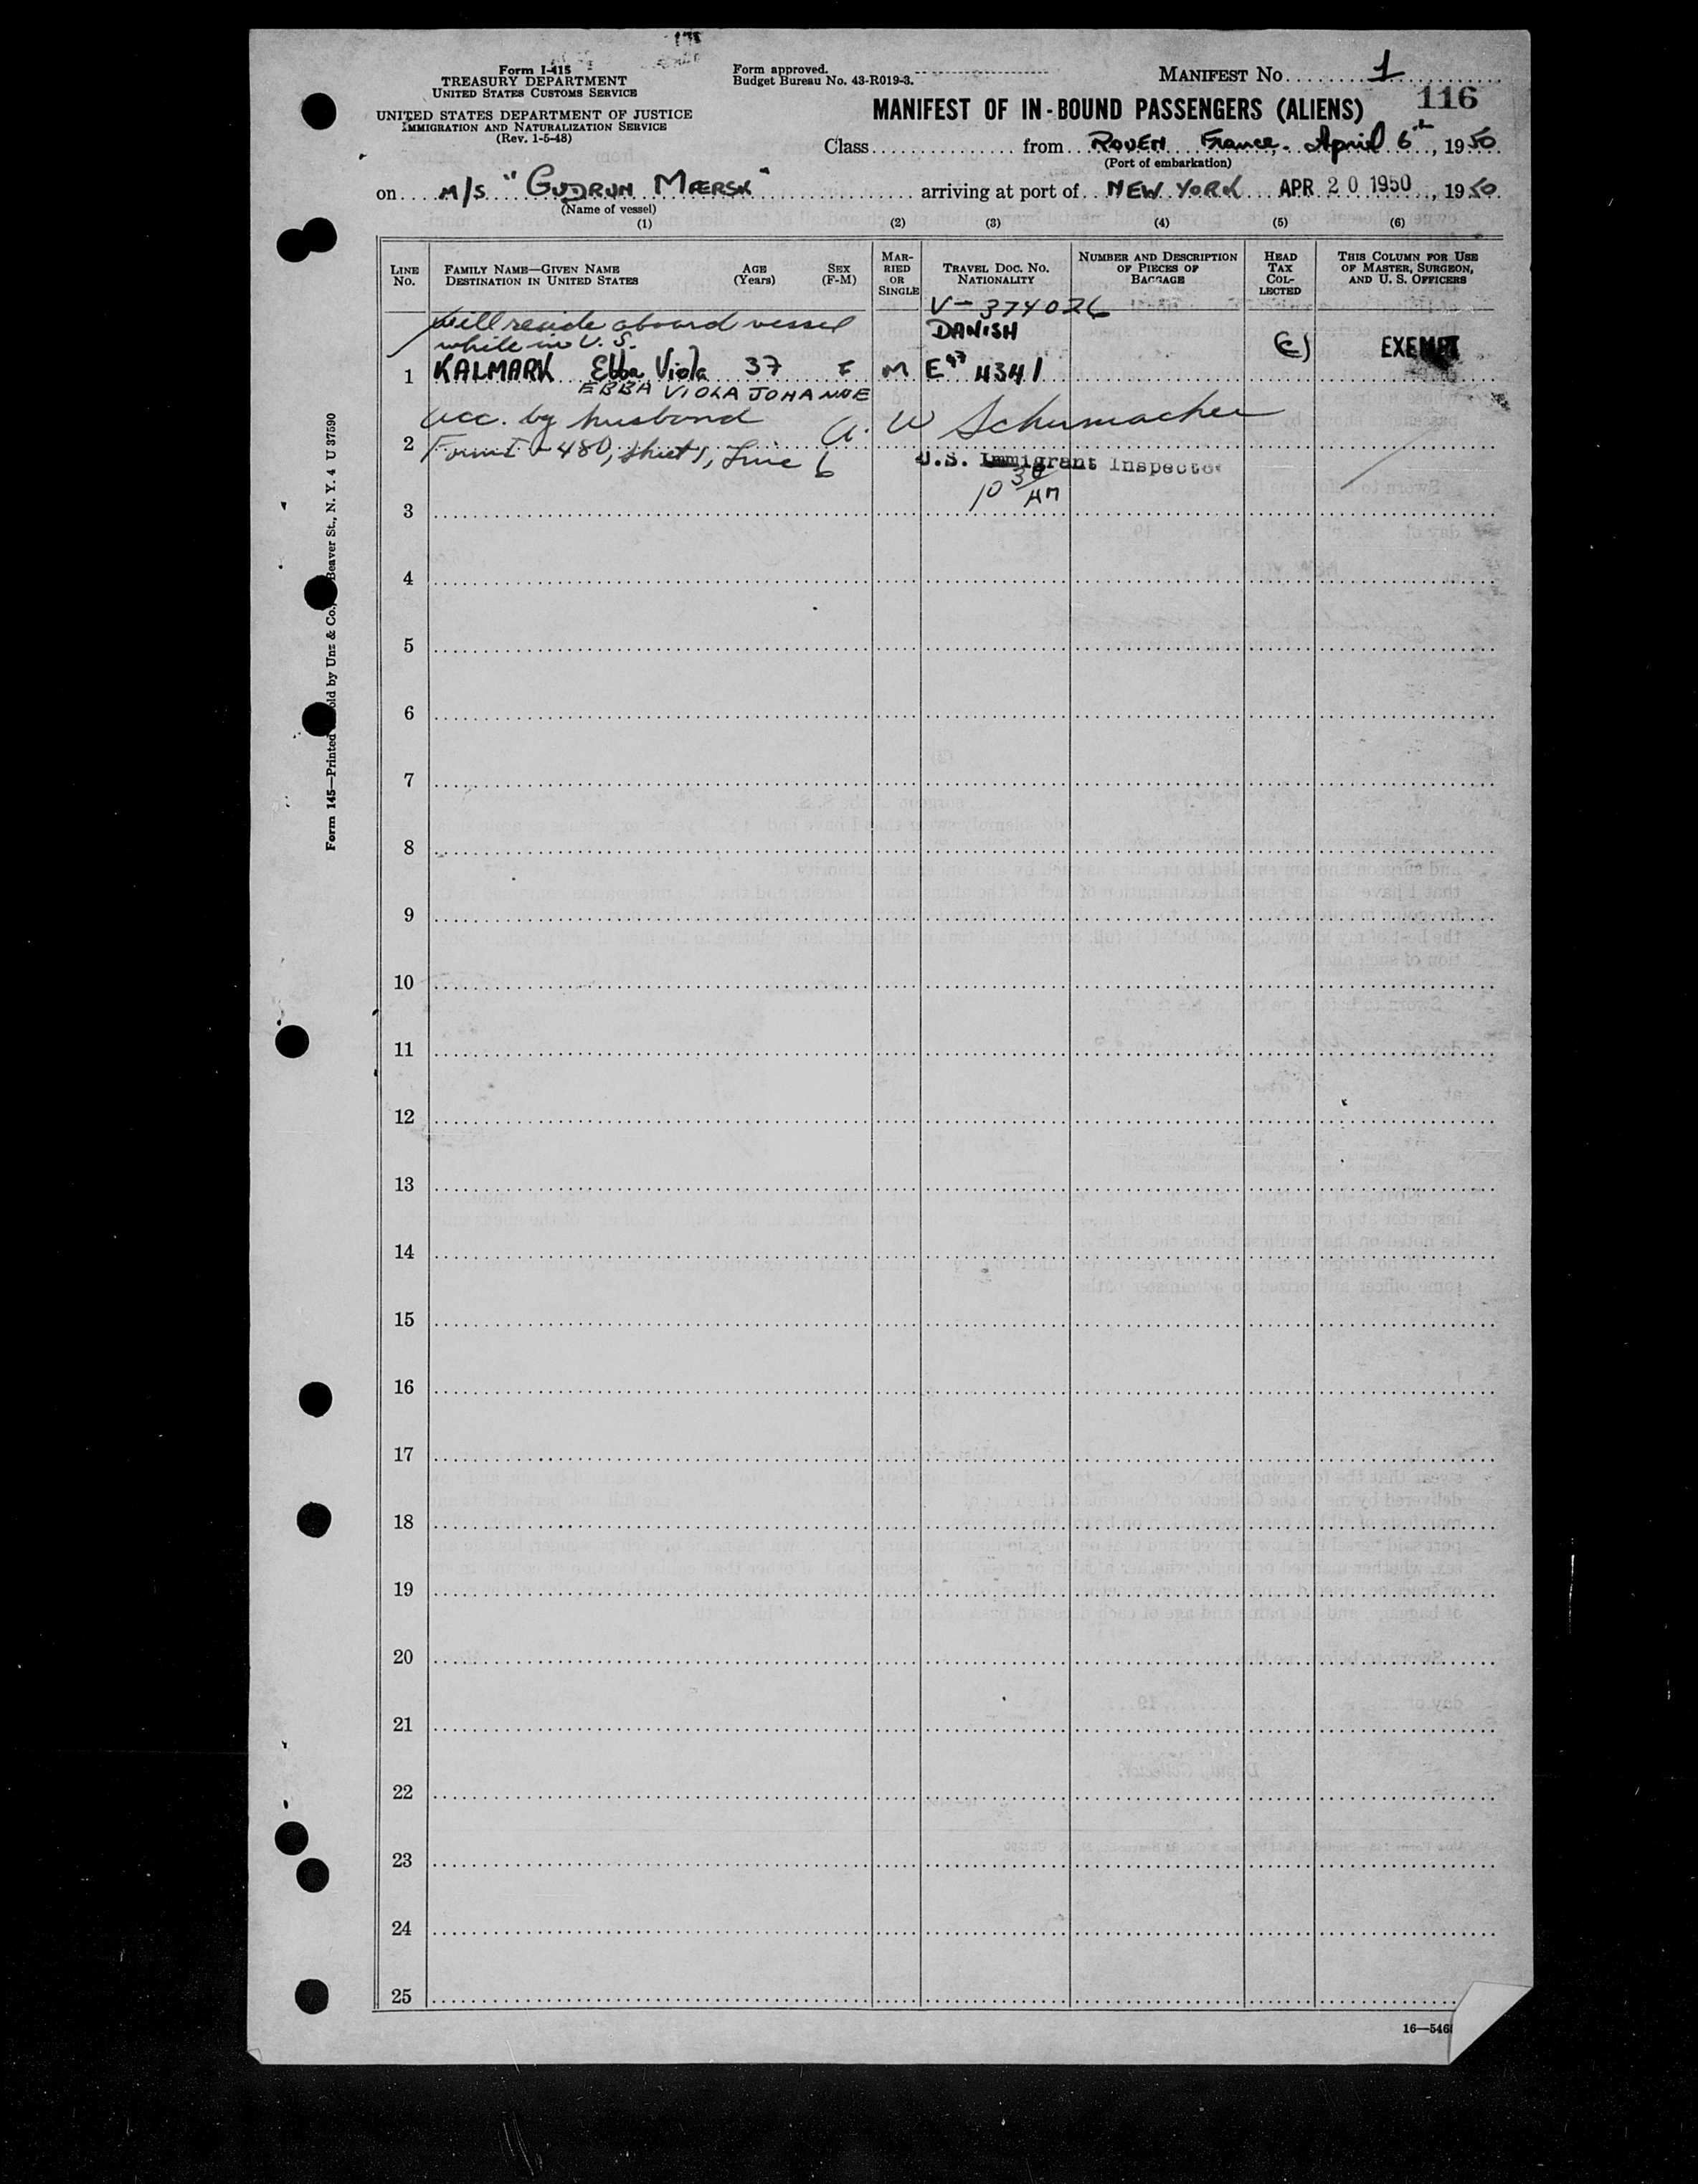 175
Form I-415
TREASURY DEPARTMENT
UNITED STATES CUSTOMS SERVICE
UNITED STATES DEPARTMENT OF JUSTICE
IMMIGRATION AND NATURALIZATION SERVICE
(Rev. 1-5-48)
Form approved.
Budget Bureau No. 43-R019-3.
MANIFEST NO. 1
116
MANIFEST OF IN-BOUND PASSENGERS (ALIENS)
Class from ROUEN France. April 6th, 1950
(Port of embarkation)
on M/S "GUDRUN MÆRSK" arriving at port of NEW YORK APR 20 1950, 1950
(Name of vessel)
(1) (2) (3) (4) (5) (6)
LINE NO.
FAMILY NAME—GIVEN NAME
DESTINATION IN UNITED STATES
AGE (Years)
SEX (F-M)
MARRIED OR SINGLE
TRAVEL DOC. NO. NATIONALITY
NUMBER AND DESCRIPTION OF PIECES OF BAGGAGE
HEAD TAX COLLECTED
THIS COLUMN FOR USE OF MASTER, SURGEON, AND U. S. OFFICERS
V-374026
Will reside aboard vessel
while in U. S.
DANISH
(E) EXEMPT
1 KALMARK Ebba Viola 37 F M E47 4341
EBBA VIOLA JOHANNE
acc. by husband
A. W Schumacher
2 Form I-480, sheet 1, Line 6
U.S. Immigrant Inspector
10 30 AM
3
4
5
6
7
8
9
10
11
12
13
14
15
16
17
18
19
20
21
22
23
24
25
16—546
Form 145—Printed
old by Unz & Co.,
Beaver St., N. Y. 4 U 37590